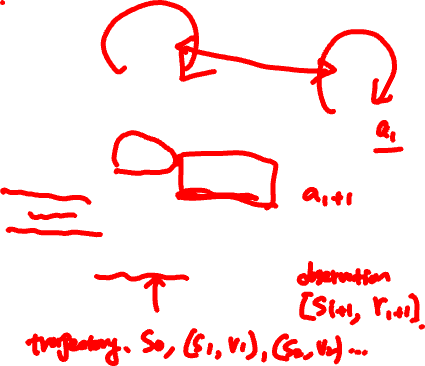 a₁
aᵢ₊₁
observation
[Sᵢ₊₁, rᵢ₊₁]
trajectory. S₀, (S₁, r₁), (S₂, r₂) ...